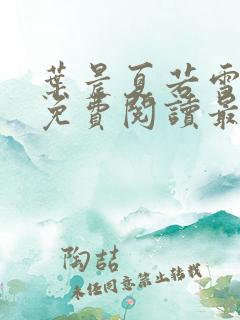 葉晨夏若雪
免費閱讀最
陶喆
未经同意禁止转载